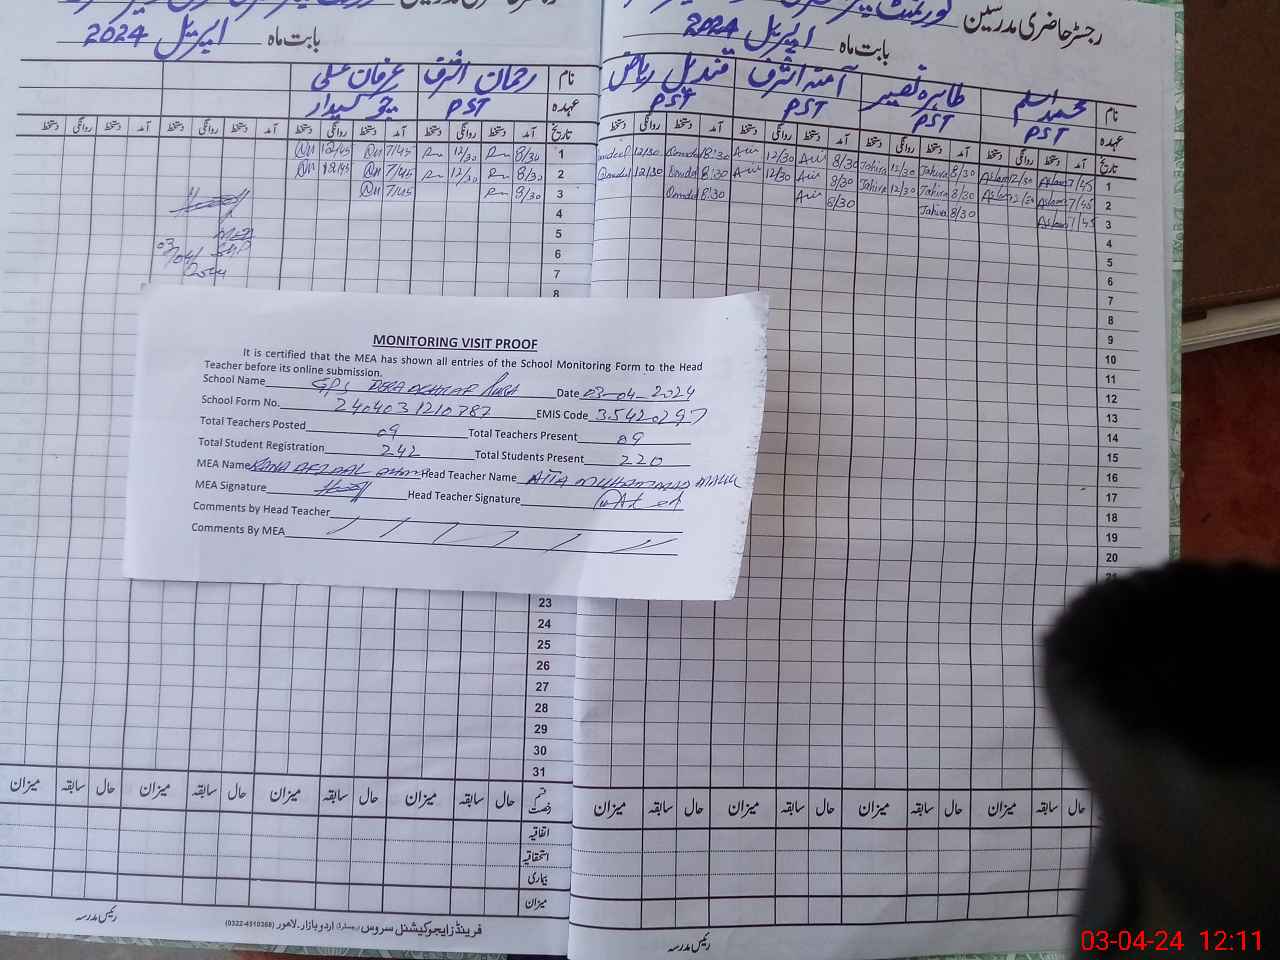 رجسٹر حاضری مدرسین
بابت ماہ اپریل 2024
نام محمد اسلم طاہرہ نصیر آمنہ اشرف قندیل ریاض
عہدہ PST PST PST PST
تاریخ آمد دستخط روانگی دستخط آمد دستخط روانگی دستخط آمد دستخط روانگی دستخط آمد دستخط روانگی دستخط
1 7/45 Aslam 12/30 Aslam 8/30 Tahira 12/30 Tahira 8/30 12/30 8:30 12/30
2 7/45 Aslam 12/30 Aslam 8/30 Tahira 12/30 Tahira 8/30 12/30 8:30 12/30
3 7/45 Aslam 8/30 Tahira 8/30 8:30
4
5
6
7
8
9
10
11
12
13
14
15
16
17
18
19
20
21
حال سابقہ میزان حال سابقہ میزان حال سابقہ میزان حال سابقہ میزان
رئیس مدرسہ
بابت ماہ اپریل 2024
نام رحمان اشرف عرفان علی
عہدہ PST چوکیدار
تاریخ آمد دستخط روانگی دستخط آمد دستخط روانگی دستخط آمد دستخط روانگی دستخط آمد دستخط روانگی دستخط
1 8/30 12/30 7/45 12/45
2 8/30 12/30 7/45 12/45
3 8/30 7/45
4
5
6
7
8
MEA
03/04/2024
MONITORING VISIT PROOF
It is certified that the MEA has shown all entries of the School Monitoring Form to the Head
Teacher before its online submission.
School Name GPS DERA Date 03-04-2024
School Form No. 2404031210787 EMIS Code 35420297
Total Teachers Posted 09 Total Teachers Present 09
Total Student Registration 242 Total Students Present 220
MEA Name RANA AFZAAL Head Teacher Name ATTA MUHAMMAD
MEA Signature Head Teacher Signature
Comments by Head Teacher
Comments By MEA
23
24
25
26
27
28
29
30
31
قسم رخصت حال سابقہ میزان حال سابقہ میزان حال سابقہ میزان حال سابقہ میزان
اتفاقیہ
استحقاقیہ
بیماری
میزان
فرینڈز ایجوکیشنل سروس (رجسٹرڈ) اردو بازار، لاہور (0322-4510368)
رئیس مدرسہ
03-04-24 12:11